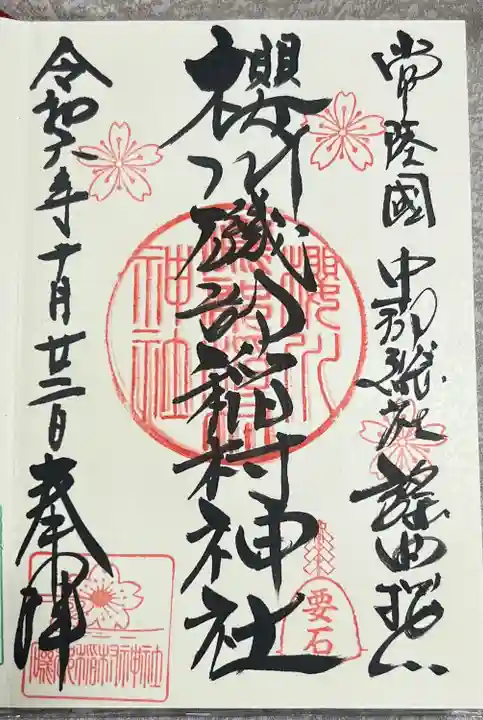 常陸國 中郡総社 謡曲桜川
櫻川磯部稲村神社
令和六年十月廿二日 奉拝
櫻川磯部稲村神社
要石
磯部稲村神社